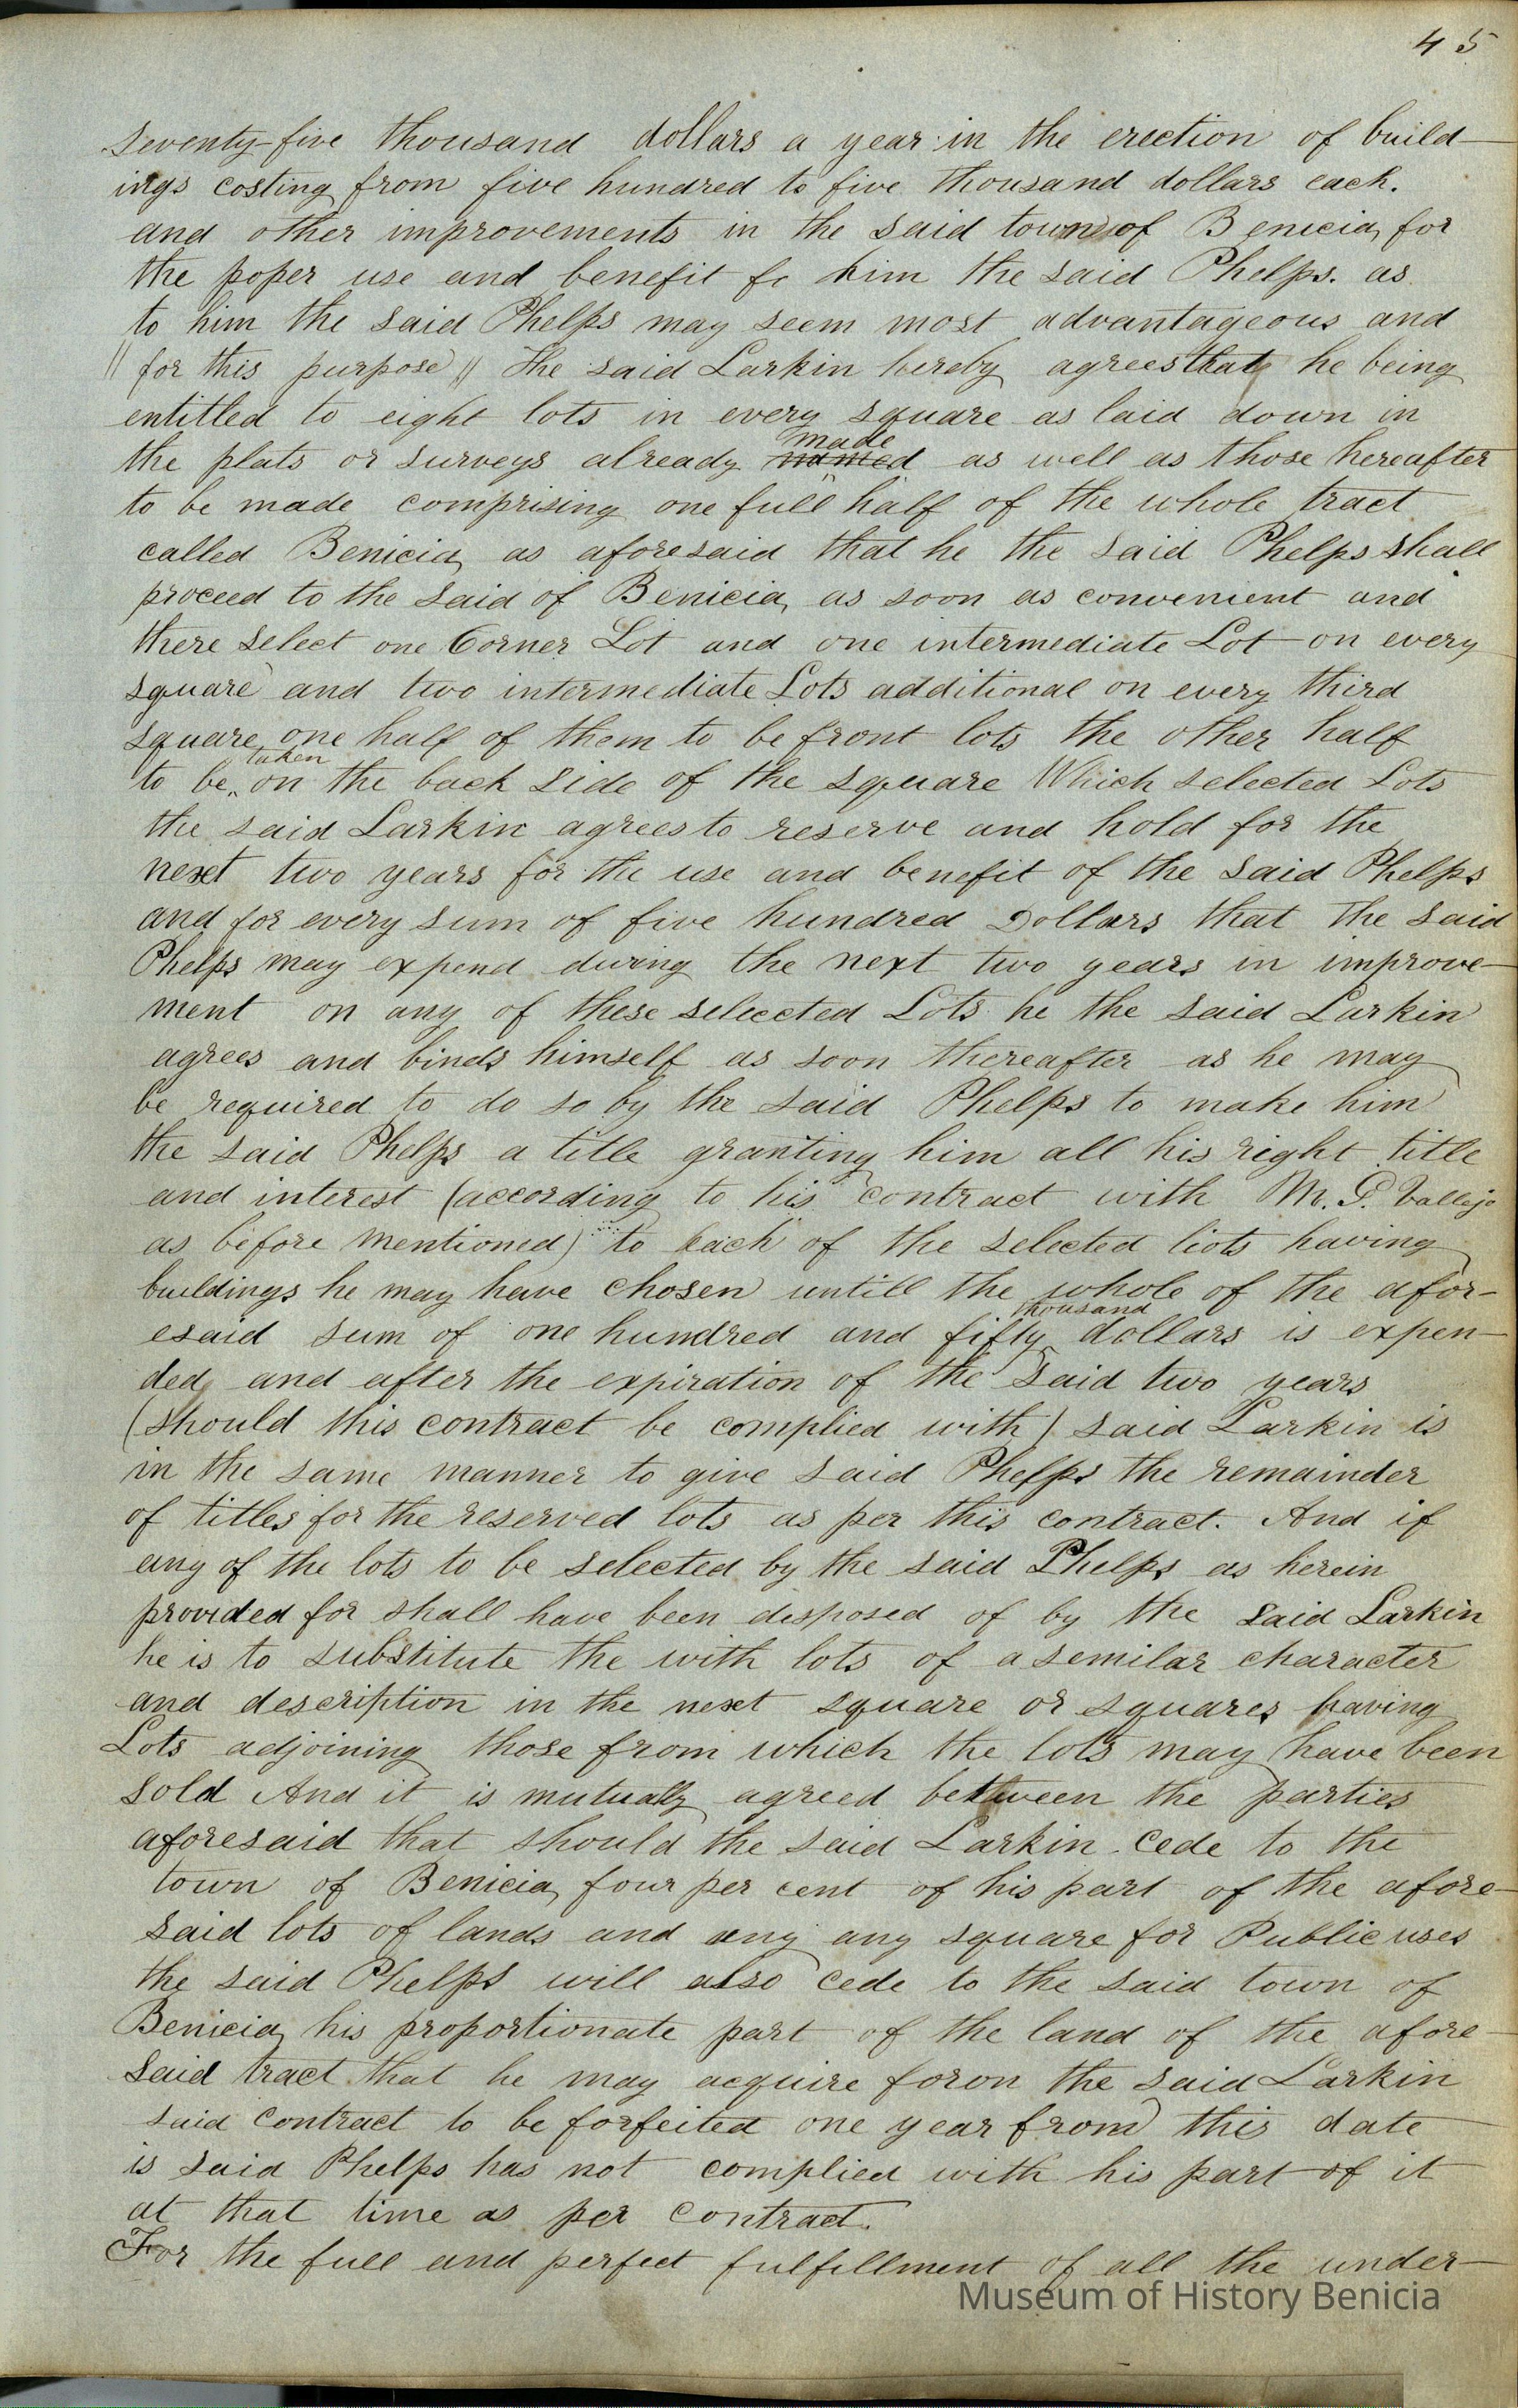 45
seventy-five thousand dollars a year in the erection of build-
ings costing from five hundred to five thousand dollars each.
and other improvements in the said town of Benicia, for
the poper use and benefit fo him the said Phelps. as
to him the said Phelps may seem most advantageous and
// for this purpose // The said Larkin hereby agrees that he being
entitled to eight lots in every square as laid down in
made
the plats or surveys already named as well as those hereafter
to be made comprising one full half of the whole tract
called Benicia, as aforesaid that he the said Phelps shall
proceed to the said of Benicia, as soon as convenient and
there select one Corner Lot and one intermediate Lot on every
square and two intermediate Lots additional on every third
square, one half of them to be front lots the other half
taken
to be on the back side of the square Which selected Lots
the said Larkin agrees to reserve and hold for the
next two years for the use and benefit of the said Phelps
and for every sum of five hundred Dollars that the said
Phelps may expend during the next two years in improve-
ment on any of these selected Lots he the said Larkin
agrees and binds himself as soon thereafter as he may
be required to do so by the said Phelps to make him
the said Phelps a title granting him all his right title
and interest (according to his contract with M. G. Vallejo
as before mentioned) to each of the selected lots having
buildings he may have chosen untill the whole of the afor-
thousand
esaid sum of one hundred and fifty dollars is expen-
ded, and after the expiration of the said two years
(should this contract be complied with) said Larkin is
in the same manner to give said Phelps the remainder
of titles for the reserved lots as per this contract. And if
any of the lots to be selected by the said Phelps as herein
provided for shall have been disposed of by the said Larkin
he is to substitute the with lots of a semilar character
and description in the next square or squares having
Lots adjoining those from which the lots may have been
sold And it is mutually agreed between the parties
aforesaid that should the said Larkin cede to the
town of Benicia, four per cent of his part of the afore-
said lots of lands and any any square for Public uses
the said Phelps will also cede to the said town of
Benicia, his proportionate part of the land of the afore-
said tract that he may acquire foron the said Larkin
said contract to be forfeited one year from this date
is said Phelps has not complied with his part of it
at that time as per contract.
For the full and perfect fulfillment of all the under-
Museum of History Benicia